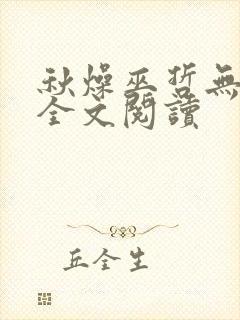 秋燥巫哲無
全文閱讀
丘全生